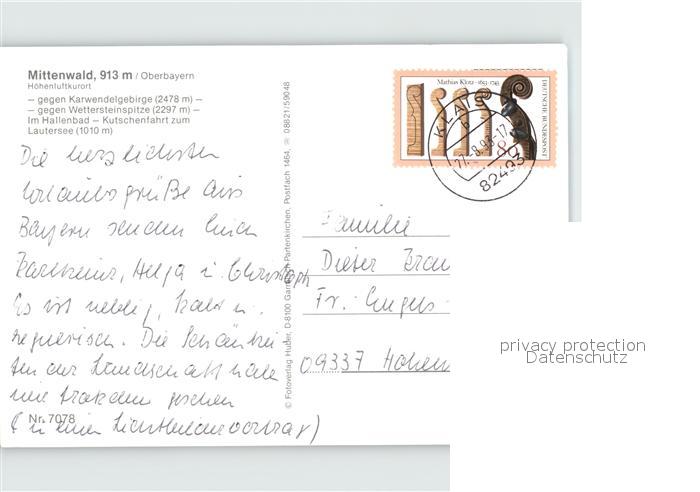 Mittenwald, 913 m / Oberbayern
Höhenluftkurort
– gegen Karwendelgebirge (2478 m) –
– gegen Wettersteinspitze (2297 m) –
Im Hallenbad – Kutschenfahrt zum
Lautersee (1010 m)
Die herzlichsten
Urlaubsgrüße aus
Bayern senden Euch
Karlheinz, Helga u. Christoph
Es ist neblig, kalt u.
regnerisch. Die Schönhei-
ten der Landschaft habe
wir trotzdem gesehen
(in einer Lichtbildervortrag)
Nr. 7078
© Fotoverlag Huber, D-8100 Garmisch-Partenkirchen, Postfach 1464, ☏ 08821/59048
Mathias Klotz · 1653-1743
DEUTSCHE BUNDESPOST
80
KLAIS
b
-8.93-17
82493
Familie
Dieter
Fr. Engels-
09337 Hohen
privacy protection
Datenschutz